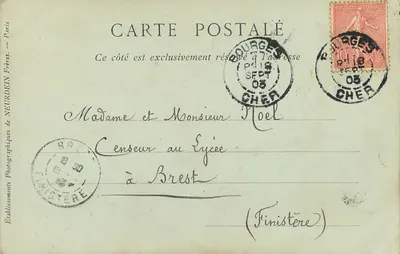 CARTE POSTALE
Ce côté est exclusivement réservé à l'adresse
BOURGES
SEPT
03
CHER
BOURGES
SEPT
03
CHER
Madame et Monsieur Noel
Censeur au Lycée
à Brest
(Finistère)
FINISTERE
Etablissements Photographiques de NEURDEIN Frères. — Paris